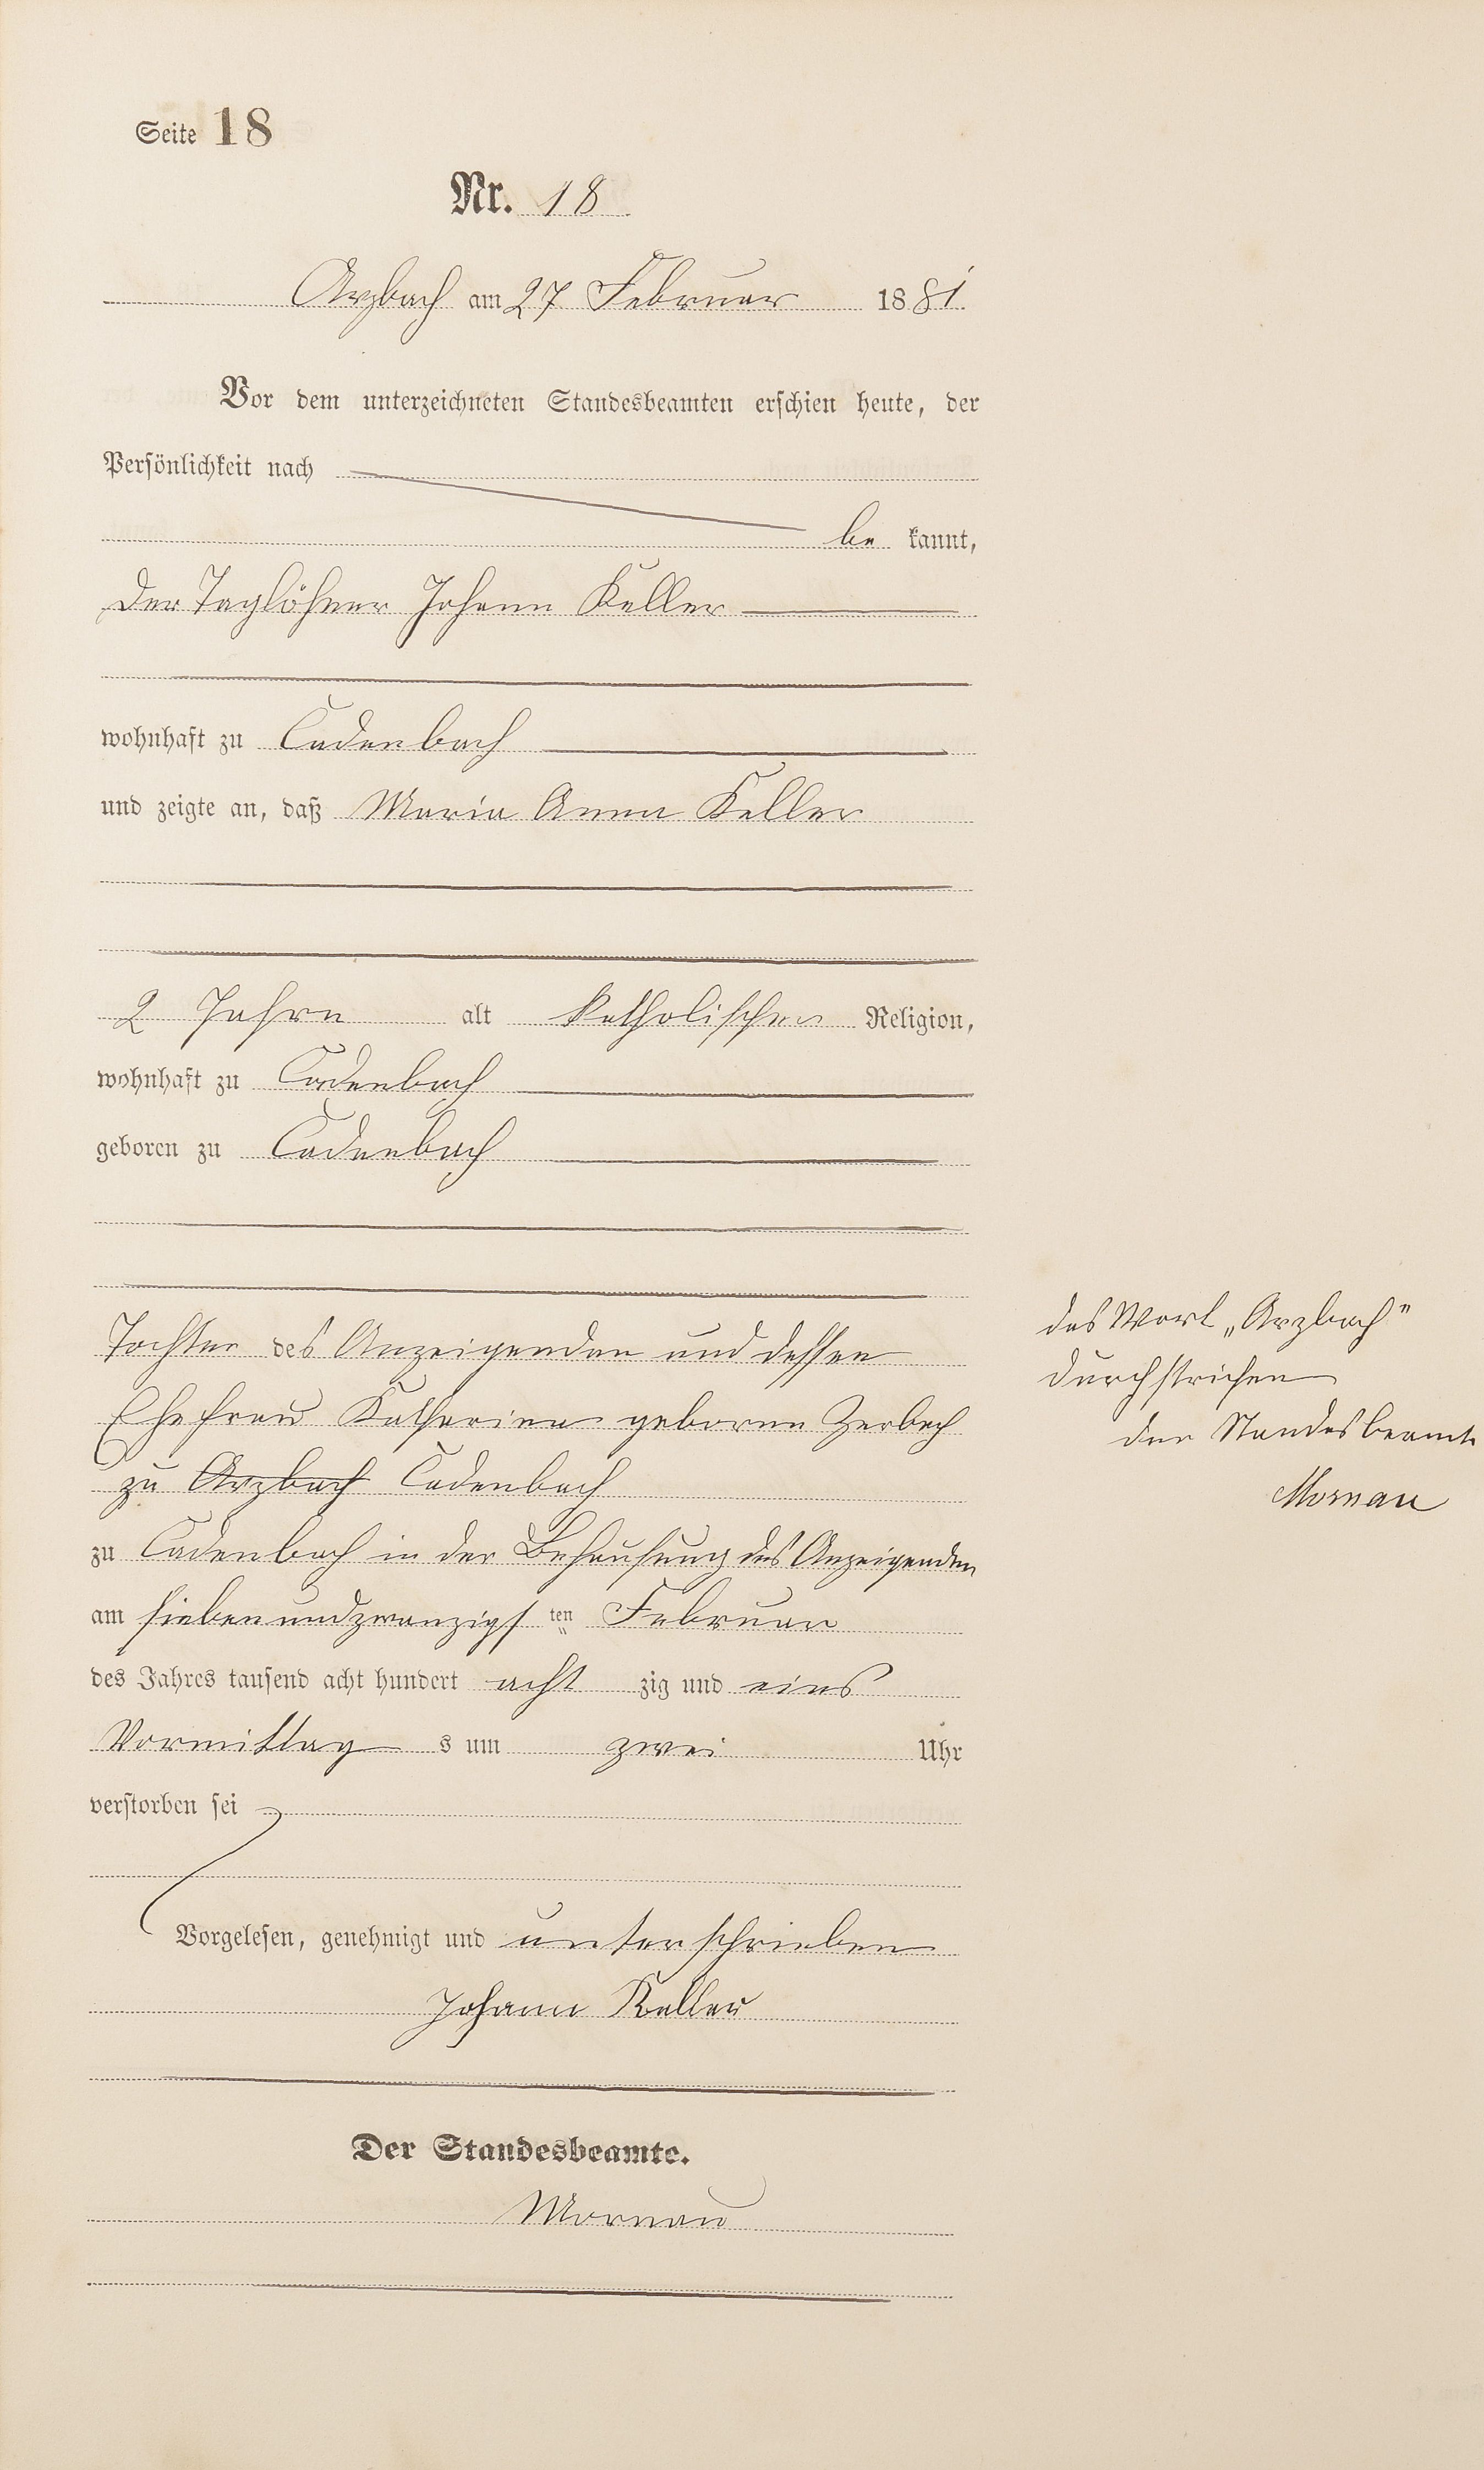 Seite 18
Nr. 18
Arzbach am 27 Februar 1881.
Vor dem unterzeichneten Standesbeamten erschien heute, der
Persönlichkeit nach
be kannt,
der Taglöhner Johann Keller
wohnhaft zu Cadenbach
und zeigte an, daß Maria Anna Keller
2 Jahre alt katholischer Religion,
wohnhaft zu Cadenbach
geboren zu Cadenbach
Tochter des Anzeigenden und dessen
das Wort „Arzbach"
Ehefrau Katharina geborne Zerbach
durchstrichen
der Standesbeamte
zu Arzbach Cadenbach
Mornau
zu Cadenbach in der Behausung des Anzeigenden
am siebenundzwanzigs ten Februar
des Jahres tausend acht hundert acht zig und eins
Vormittag s um zwei Uhr
verstorben sei
Vorgelesen, genehmigt und unterschrieben
Johann Keller
Der Standesbeamte.
Mornau